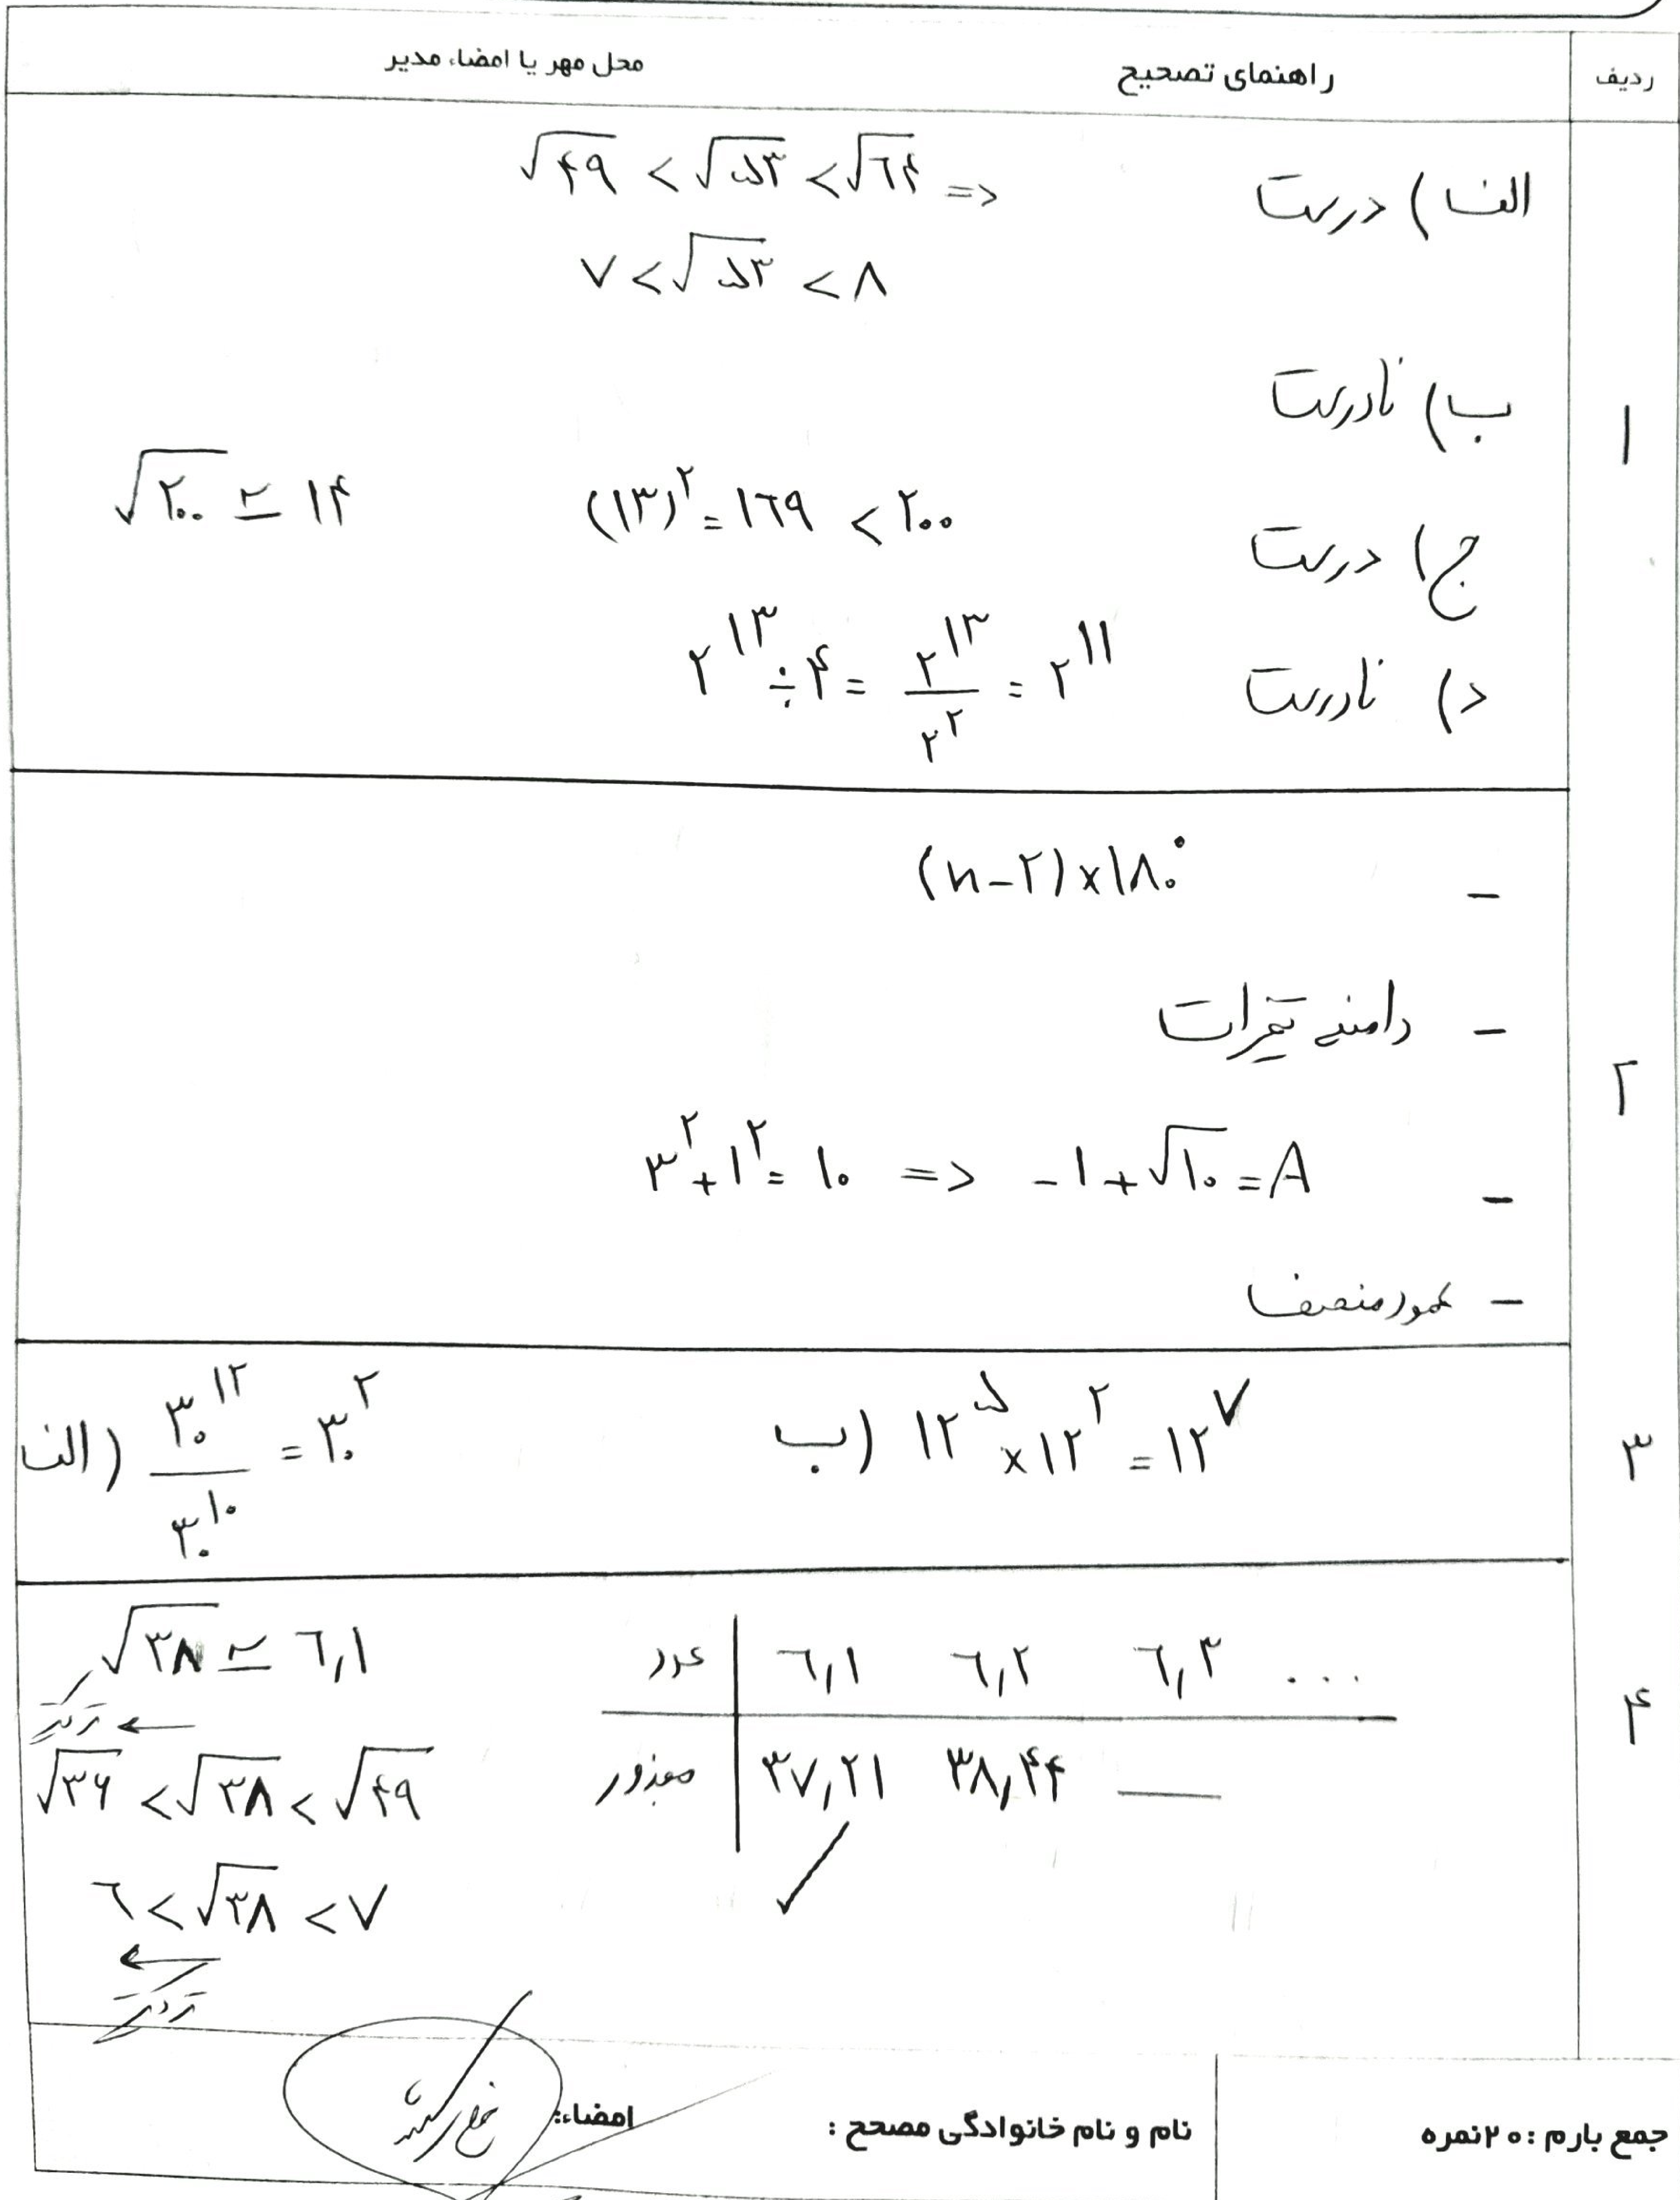 ردیف راهنمای تصحیح محل مهر یا امضاء مدیر
۱
الف) درست √۴۹ < √۵۳ < √۶۴ =>
۷ < √۵۳ < ۸
ب) نادرست
ج) درست (۱۳)^۲ = ۱۶۹ < ۲۰۰ √۲۰۰ ≃ ۱۴
د) نادرست ۲^۱۳ ÷ ۴ = ۲^۱۳/۲^۲ = ۲^۱۱
۲
- (n-۲)×۱۸۰°
- دامنه تغیرات
- ۳^۲+۱^۲=۱۰ => -۱+√۱۰=A
- عمود منصف
۳
الف) ۳۰^۱۲/۳۰^۱۰ = ۳۰^۲ ب) ۱۲^۵×۱۲^۲=۱۲^۷
۴
√۳۸ ≃ ۶٫۱ عدد ۶٫۱ ۶٫۲ ۶٫۳ ...
←
√۳۶ < √۳۸ < √۴۹ مجذور ۳۷٫۲۱ ۳۸٫۴۴ —
✓
۶ < √۳۸ < ۷
←
جمع بارم : ۲۰نمره نام و نام خانوادگی مصحح : امضاء: